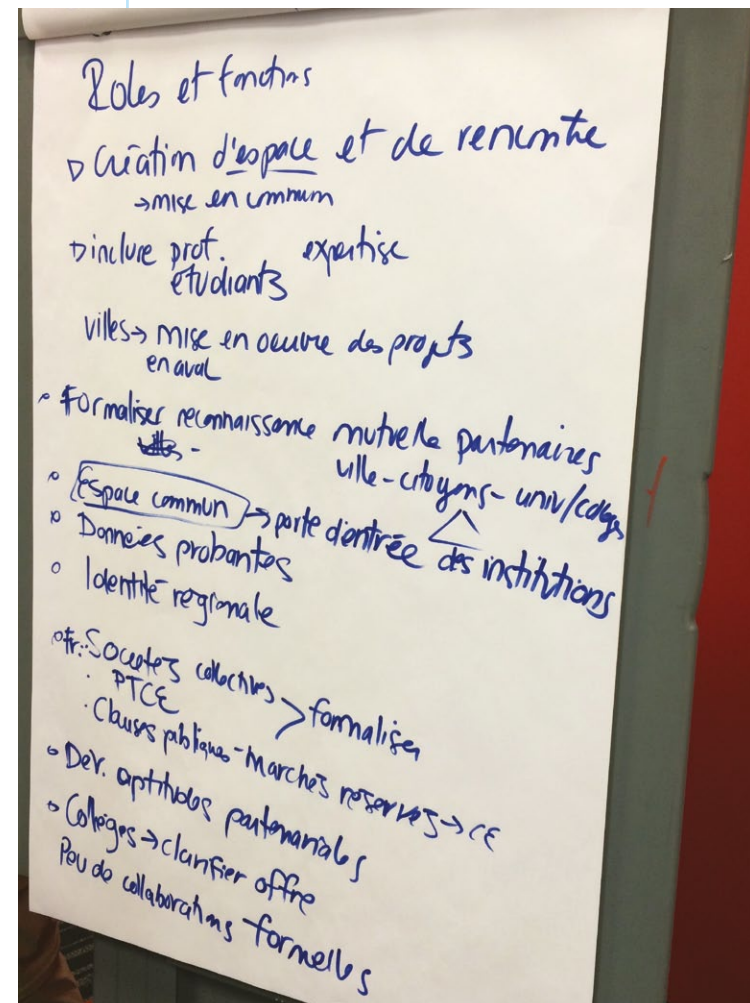 Roles et fonctions
▷ Création d'espace et de rencontre
→ mise en commun
▷ inclure prof. expertise
étudiants
villes → mise en oeuvre des projets
en aval
° Formaliser reconnaissance mutuelle partenaires
ville - citoyens - univ/collèges
° Espace commun → porte d'entrée des institutions
° Données probantes
° Identité régionale
° Fr: Sociétés collectives > formaliser
· PTCE
· Clauses publiques - marchés réservés → CE
° Dév. aptitudes partenariales
° Collèges → clarifier offre
Peu de collaborations formelles